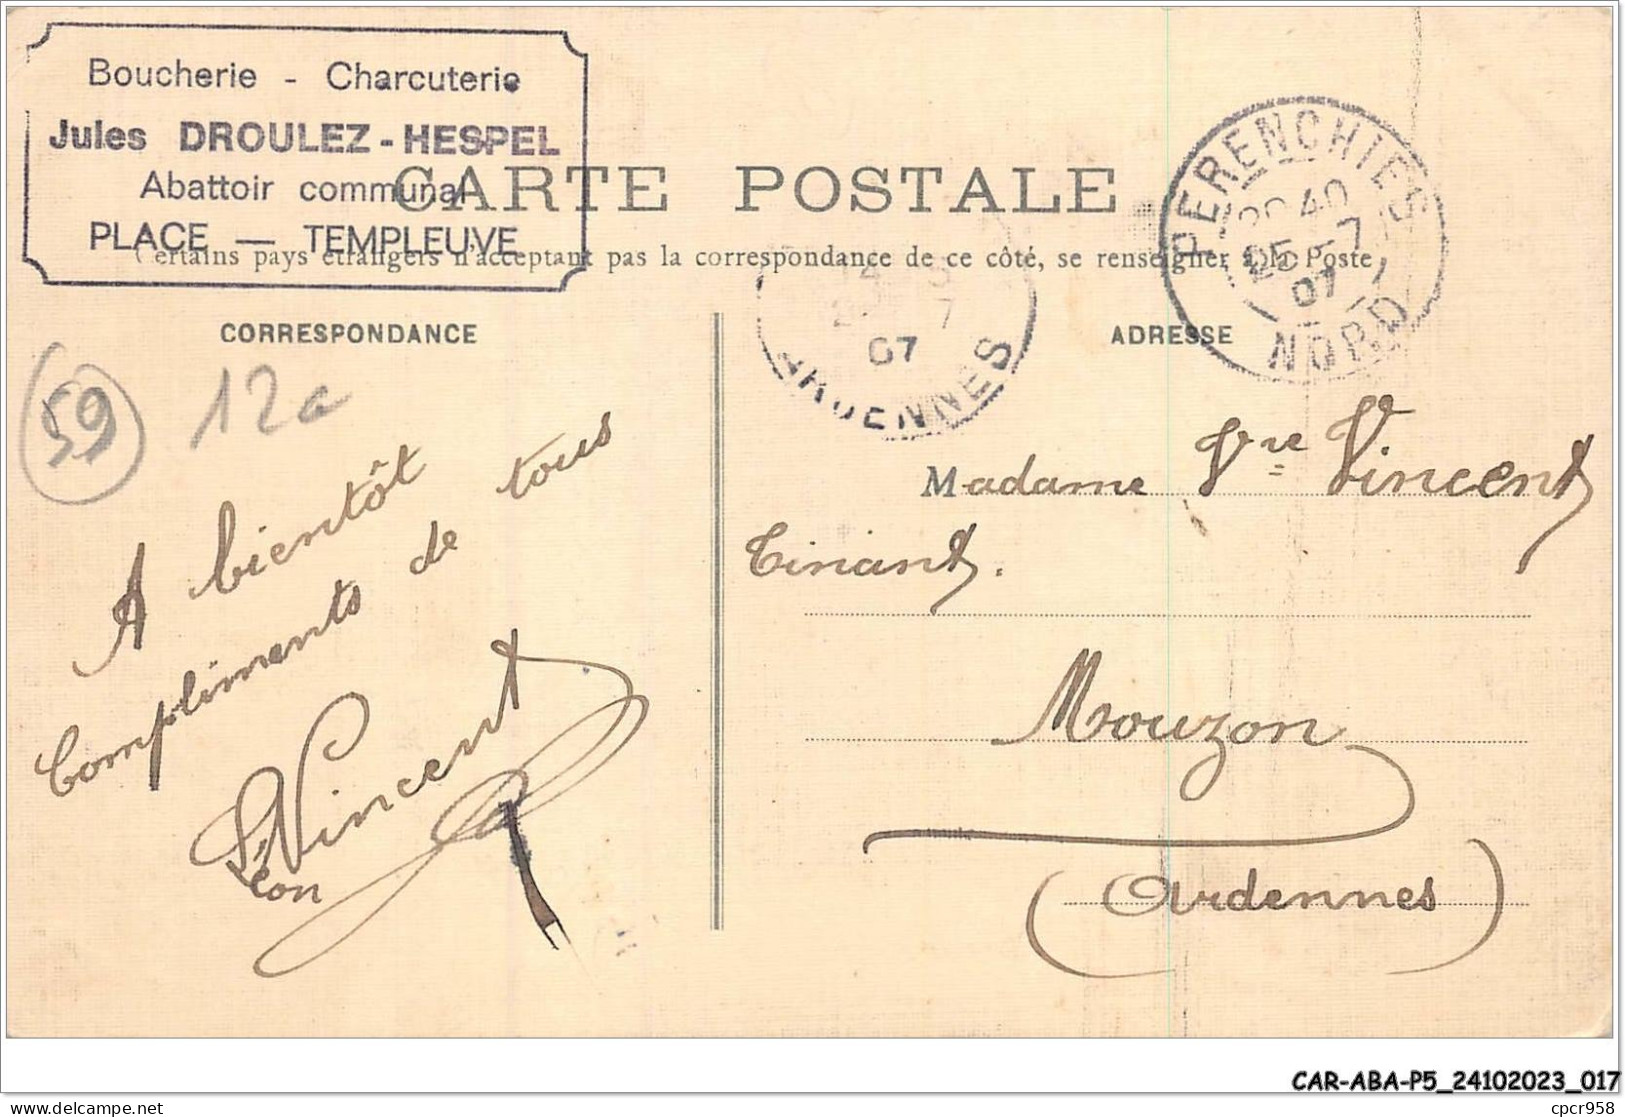 Boucherie - Charcuterie
Jules DROULEZ-HESPEL
Abattoir communal
PLACE — TEMPLEUVE
CARTE POSTALE
Certains pays étrangers n'acceptant pas la correspondance de ce côté, se renseigner à la Poste
PERENCHIES
20 40
25 - 7
07
NORD
7
07
ARDENNES
CORRESPONDANCE
ADRESSE
59
12a
A bientôt
Compliments de tous
Vincent
Léon
Madame Vve Vincent
Tinant.
Mouzon
(Ardennes)
CAR-ABA-P5_24102023_017
cpcr958